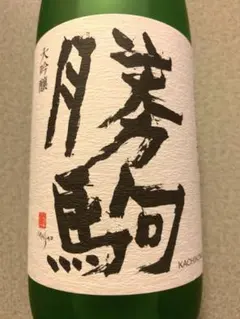 大吟醸
勝駒
KACHIKOMA